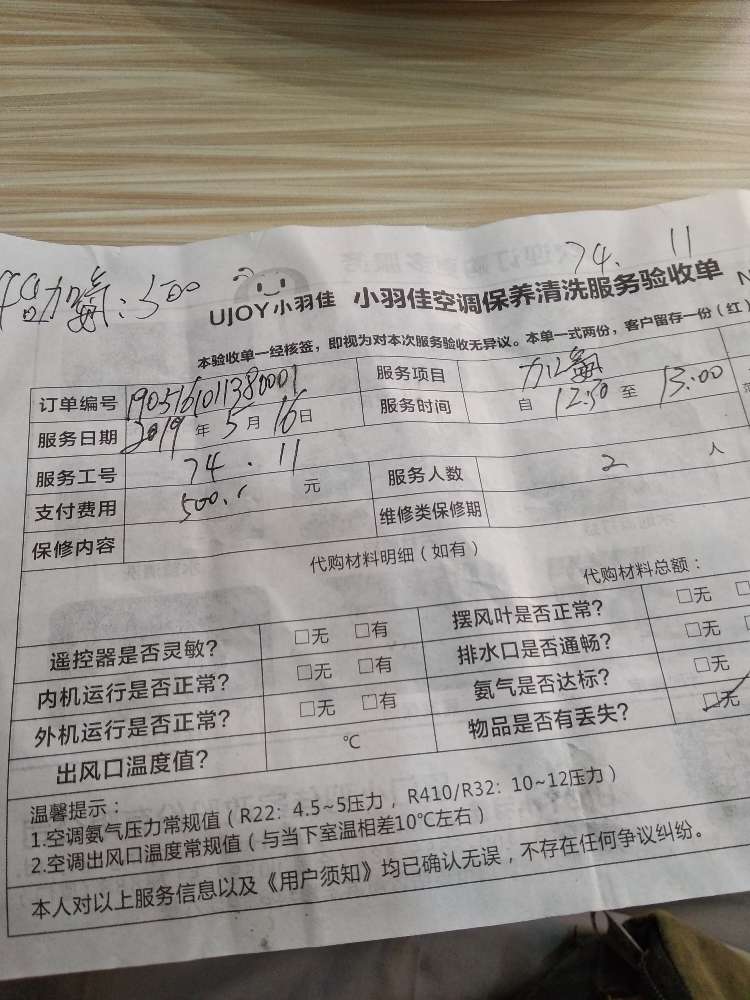 74. 11
加氟：500
UJOY小羽佳 小羽佳空调保养清洗服务验收单
本验收单一经核签，即视为对本次服务验收无异议。本单一式两份，客户留存一份（红）
订单编号 190516101138000 服务项目 加氟
服务日期 2019 年 5 月 16 日 服务时间 自 12:30 至 13:00
服务工号 74.11 服务人数 2 人
支付费用 500. 元 维修类保修期
保修内容
代购材料明细（如有）
代购材料总额：
遥控器是否灵敏？ □无 □有 摆风叶是否正常？ □无
内机运行是否正常？ □无 □有 排水口是否通畅？ □无
外机运行是否正常？ □无 □有 氨气是否达标？ □无
出风口温度值？ ℃ 物品是否有丢失？ □无
温馨提示：
1.空调氨气压力常规值（R22：4.5~5压力，R410/R32：10~12压力）
2.空调出风口温度常规值（与当下室温相差10℃左右）
本人对以上服务信息以及《用户须知》均已确认无误，不存在任何争议纠纷。